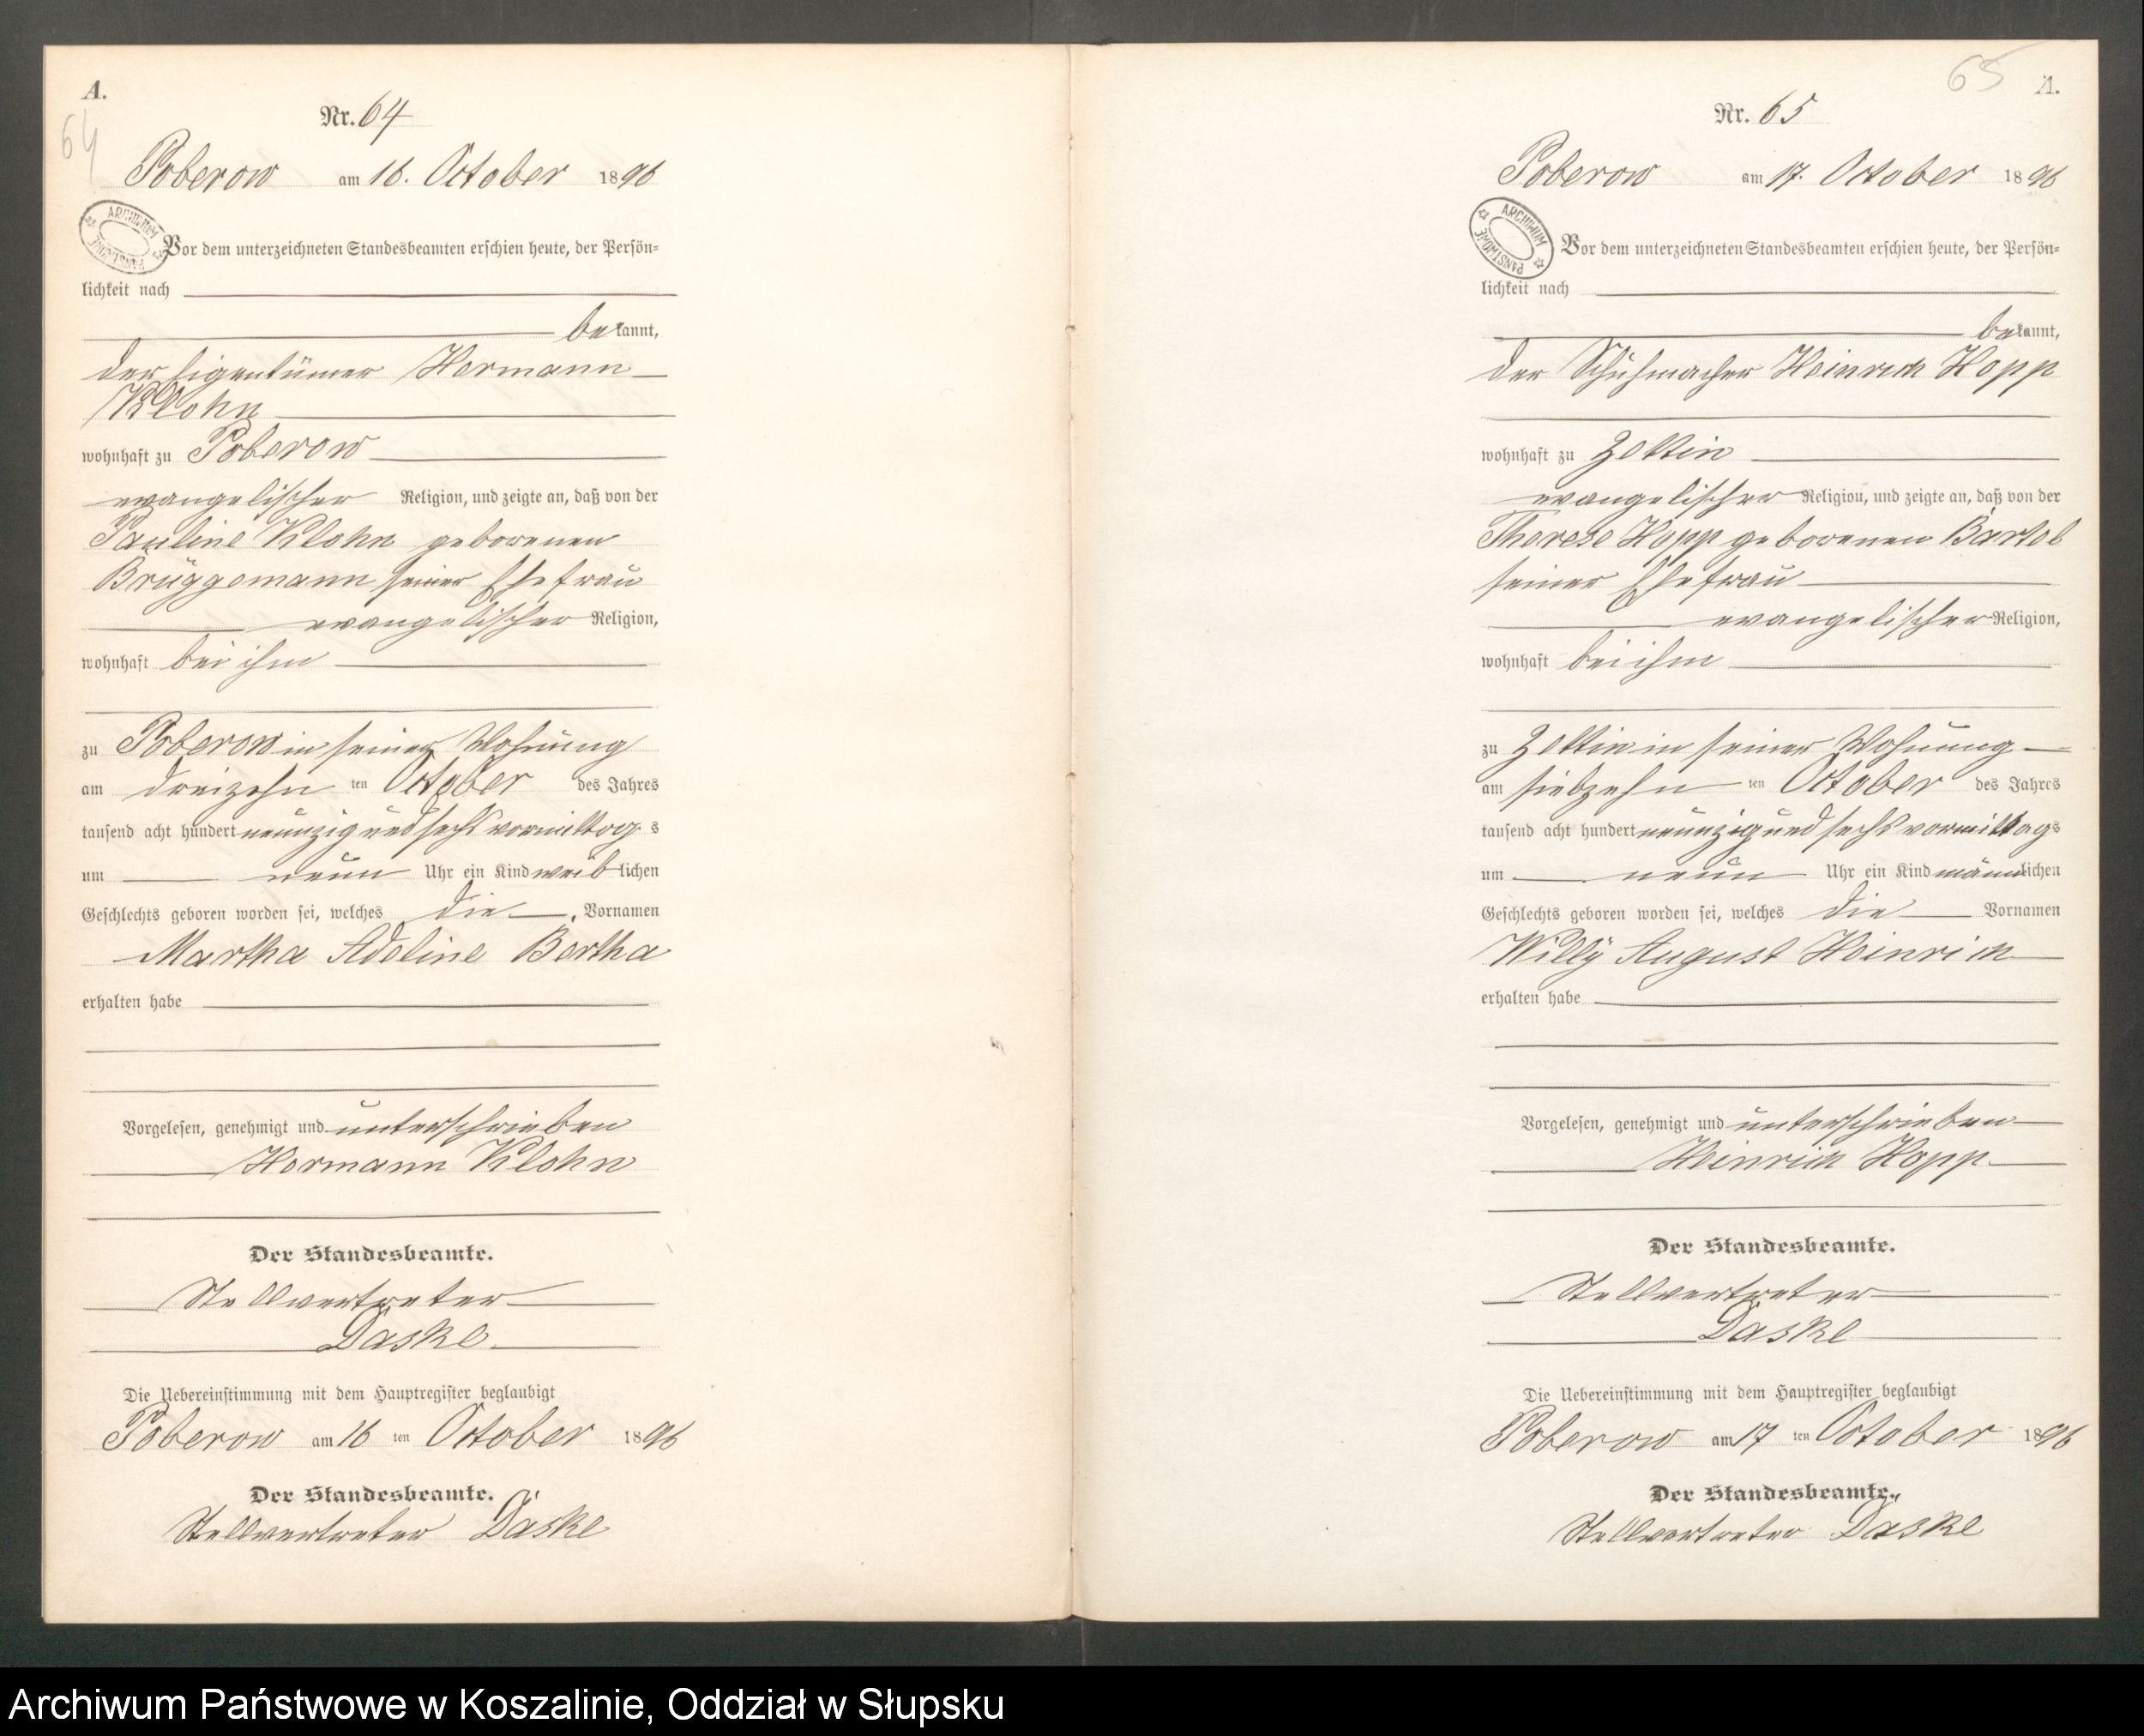 A.
64
Nr. 64
Poberow am 16. October 1896
ARCHIWUM PAŃSTWOWE
Vor dem unterzeichneten Standesbeamten erschien heute, der Persön-
lichkeit nach
bekannt,
der Eigentümer Hermann
Klohn
wohnhaft zu Poberow
evangelischer Religion, und zeigte an, daß von der
Pauline Klohn geborenen
Brüggemann seiner Ehefrau
evangelischer Religion,
wohnhaft bei ihm
zu Poberow in seiner Wohnung
am dreizehn ten October des Jahres
tausend acht hundert neunzig und sechs vormittags
um neun Uhr ein Kind weiblichen
Geschlechts geboren worden sei, welches die Vornamen
Martha Adeline Bertha
erhalten habe
Vorgelesen, genehmigt und unterschrieben
Hermann Klohn
Der Standesbeamte.
Stellvertreter
Daske
Die Uebereinstimmung mit dem Hauptregister beglaubigt
Poberow am 16 ten October 1896
Der Standesbeamte.
Stellvertreter Daske
65
A.
Nr. 65
Poberow am 17. October 1896
ARCHIWUM PAŃSTWOWE
Vor dem unterzeichneten Standesbeamten erschien heute, der Persön-
lichkeit nach
bekannt,
der Schuhmacher Heinrich Hopp
wohnhaft zu Zettin
evangelischer Religion, und zeigte an, daß von der
Therese Hopp geborenen Bartel
seiner Ehefrau
evangelischer Religion,
wohnhaft bei ihm
zu Zettin in seiner Wohnung
am siebzehn ten October des Jahres
tausend acht hundert neunzig und sechs vormittags
um neun Uhr ein Kind männlichen
Geschlechts geboren worden sei, welches die Vornamen
Willy August Heinrich
erhalten habe
Vorgelesen, genehmigt und unterschrieben
Heinrich Hopp
Der Standesbeamte.
Stellvertreter
Daske
Die Uebereinstimmung mit dem Hauptregister beglaubigt
Poberow am 17 ten October 1896
Der Standesbeamte.
Stellvertreter Daske
Archiwum Państwowe w Koszalinie, Oddział w Słupsku